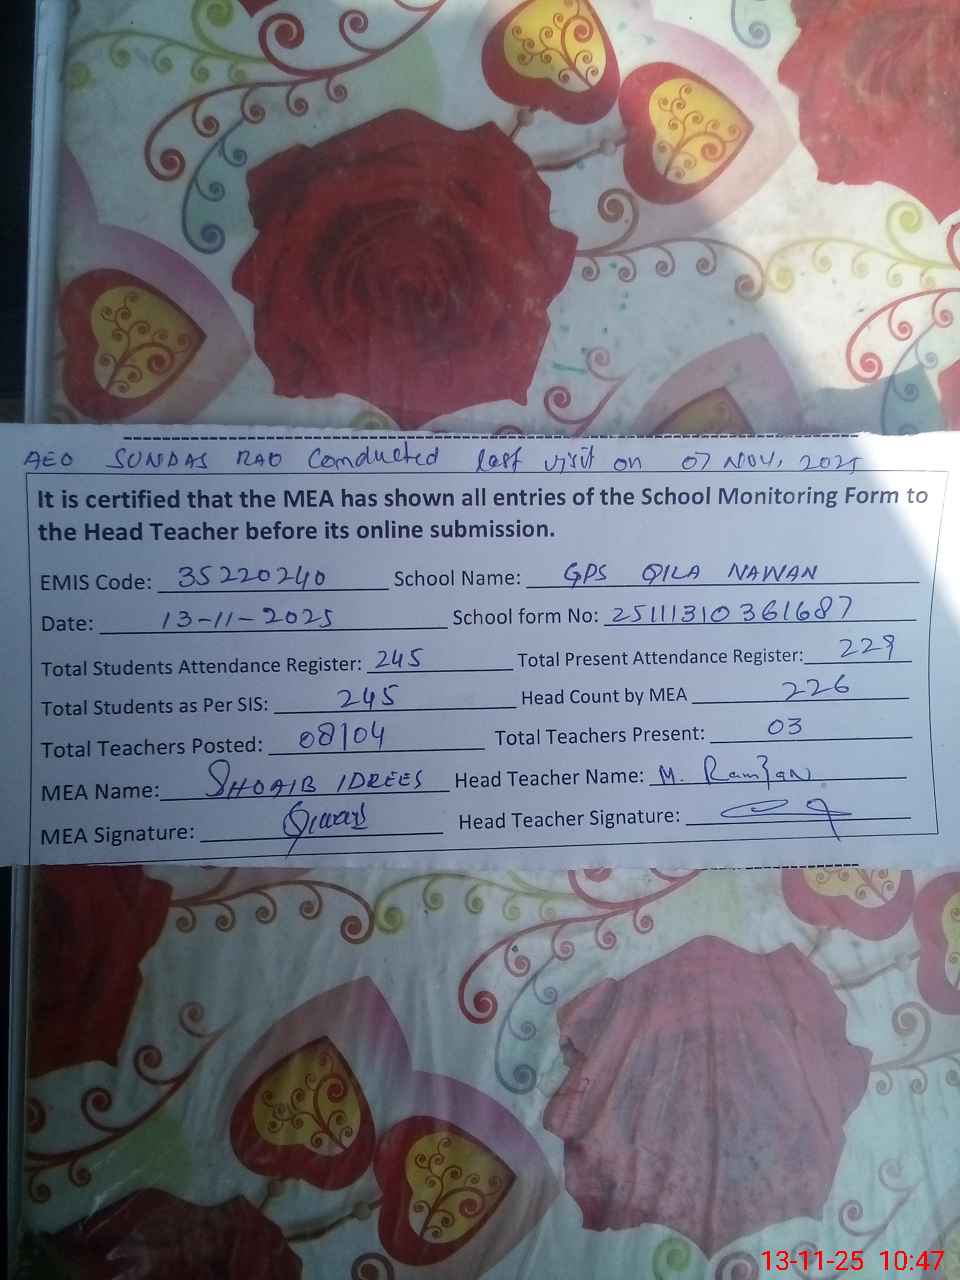 AEO SUNDAS RAO Conducted last visit on 07 NOV, 2025
It is certified that the MEA has shown all entries of the School Monitoring Form to
the Head Teacher before its online submission.
EMIS Code: 35220240 School Name: GPS QILA NAWAN
Date: 13-11-2025 School form No: 25111310361687
Total Students Attendance Register: 245 Total Present Attendance Register: 229
Total Students as Per SIS: 245 Head Count by MEA 226
Total Teachers Posted: 08/04 Total Teachers Present: 03
MEA Name: SHOAIB IDREES Head Teacher Name: M. Ramzan
MEA Signature: Head Teacher Signature:
13-11-25 10:47